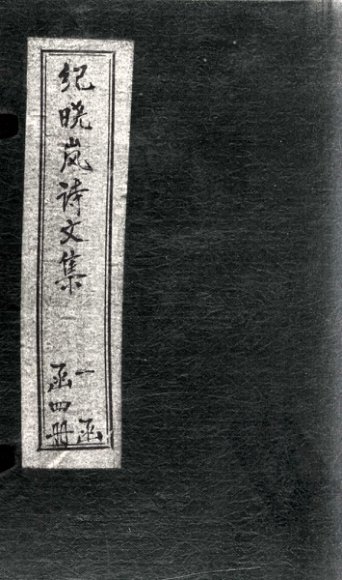 纪晓岚诗文集
一函
函四册